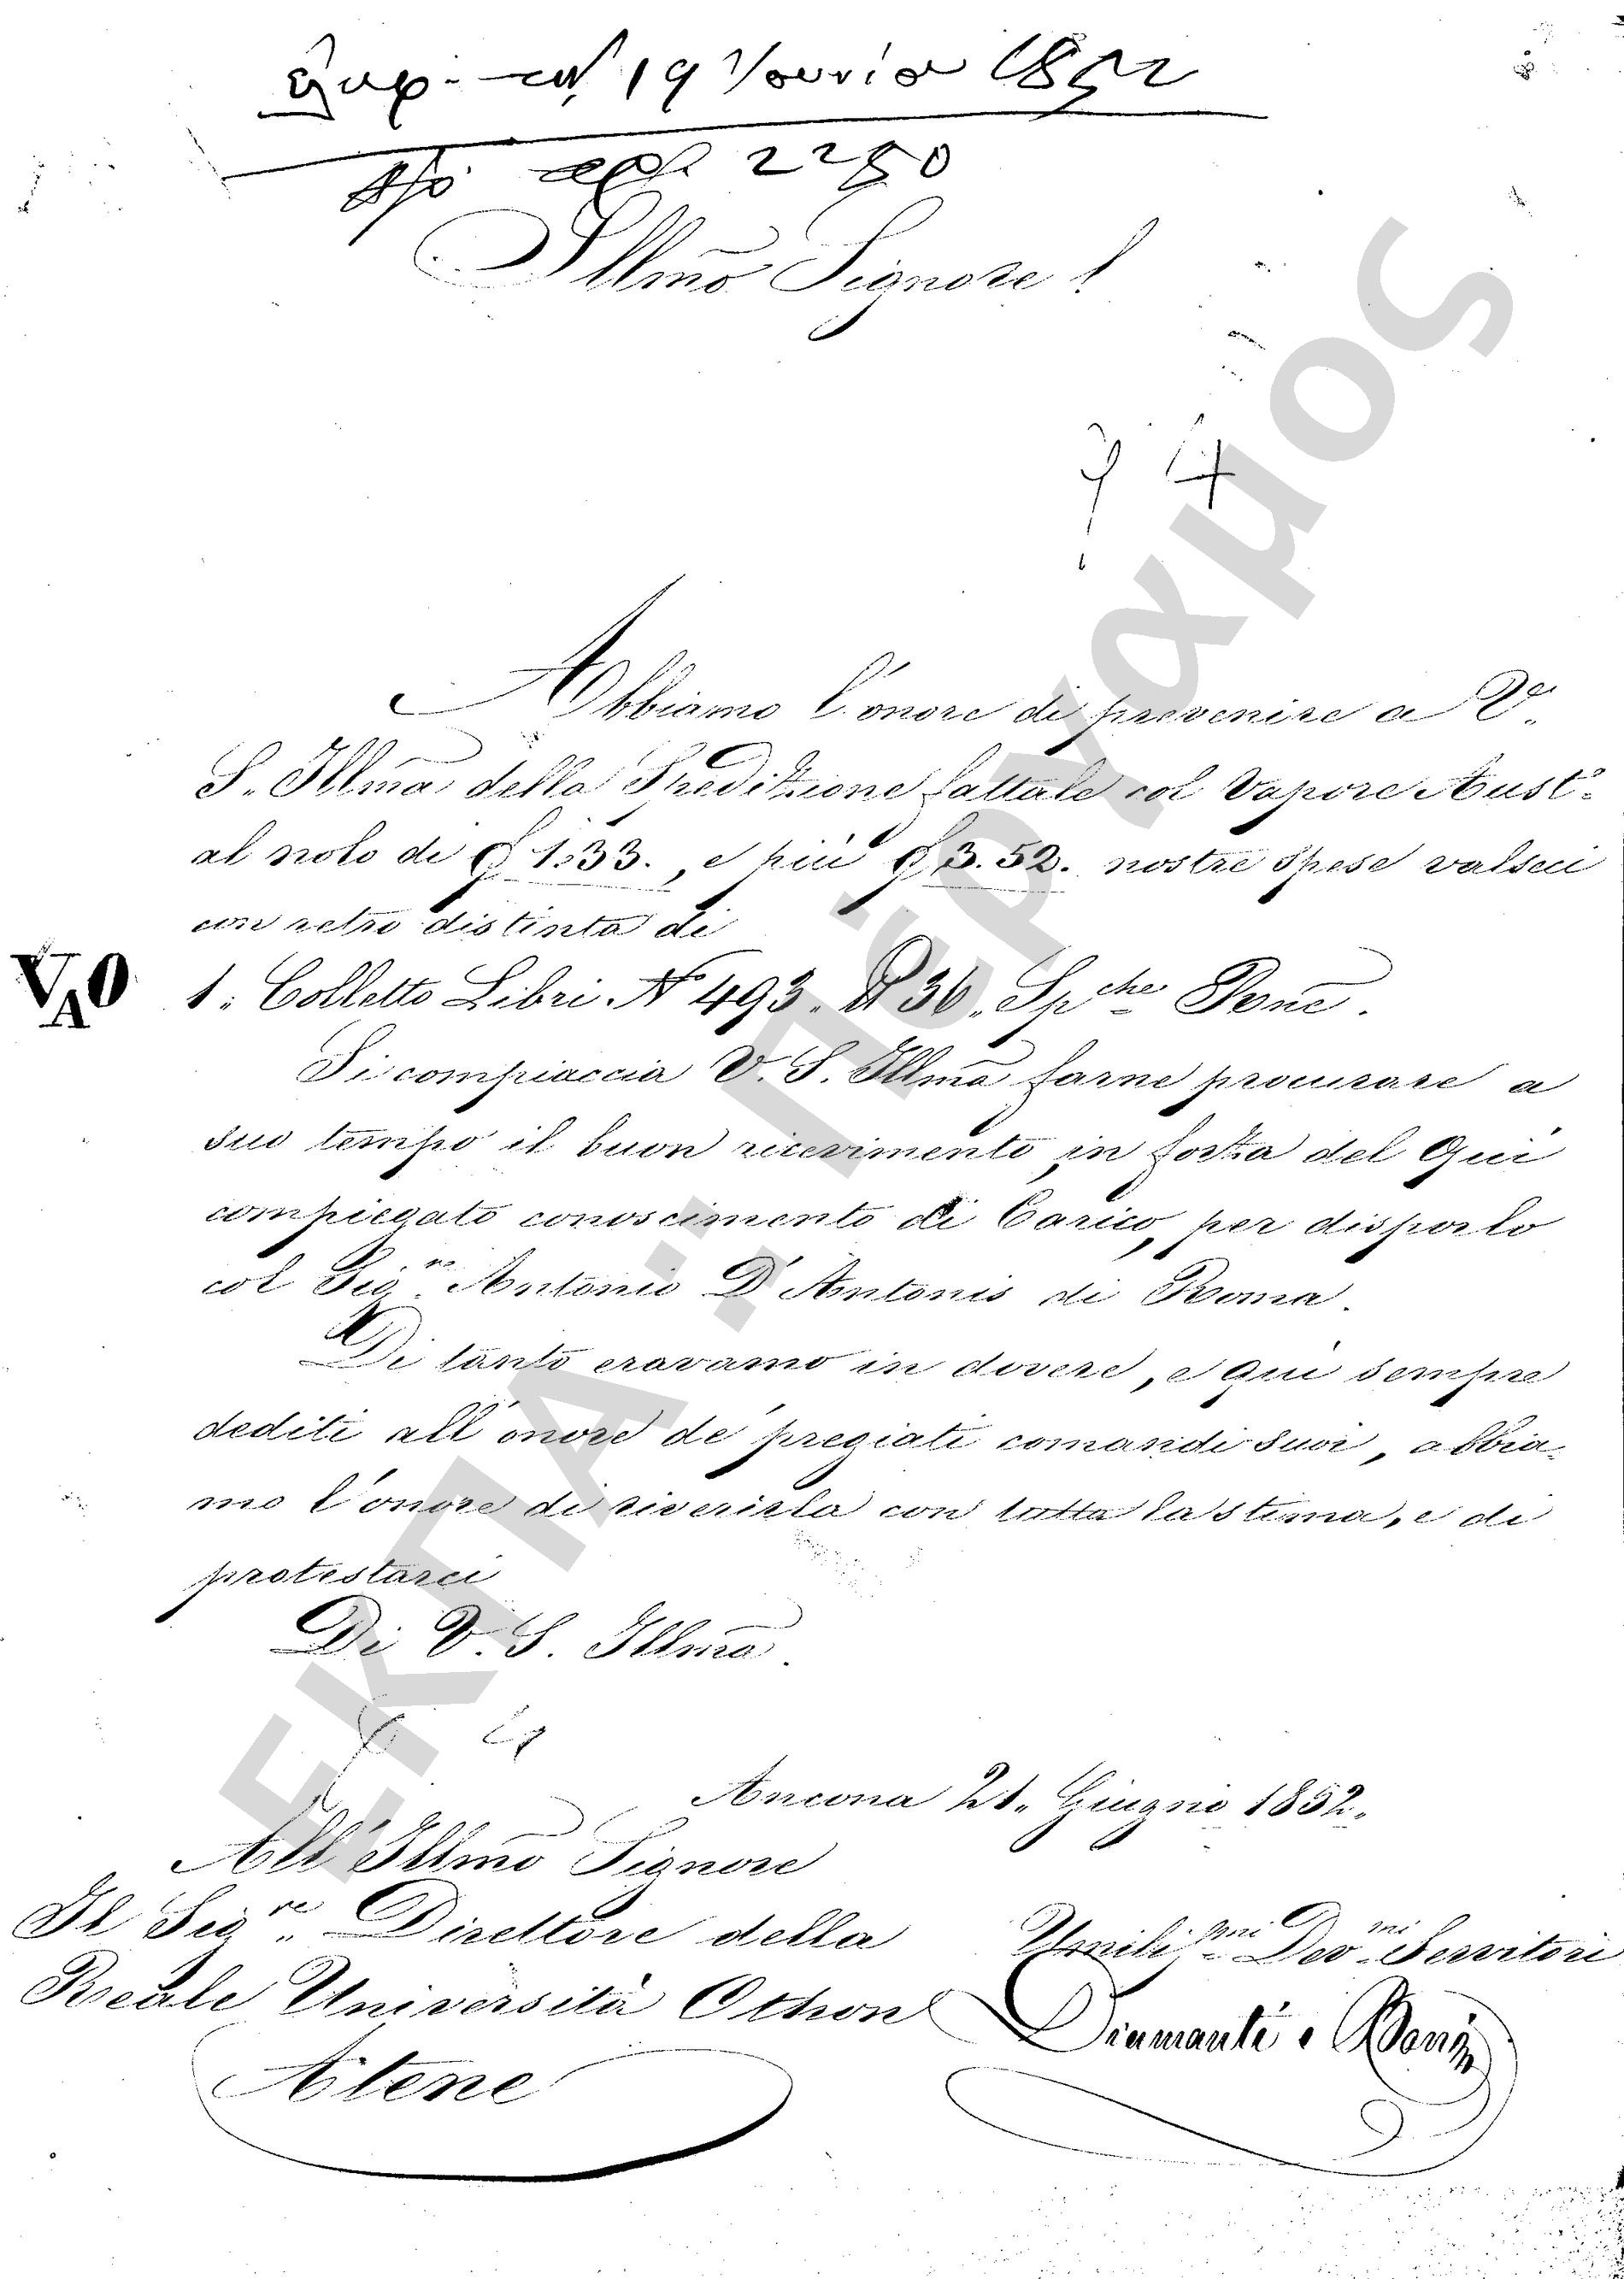 19 Ιουνίου 1852
2280
Illmo Signore!
Abbiamo l'onore di prevenire a V.
S. Illma della Spedizione fattale col Vapore Aust.
al nolo di 1.33., e più 3.52. nostre Spese valseci
con retro distinta di
VAO 1. Colletto Libri N° 493. 36. Sp.che Pone.
Si compiaccia V. S. Illma farne procurare a
suo tempo il buon ricevimento in forza del qui
compiegato conoscimento di Carico, per disporlo
col Sig.re Antonio D'Antonis di Roma.
Di tanto eravamo in dovere, e qui sempre
dediti all'onore de' pregiati comandi suoi, abbia-
mo l'onore di riverirla con tutta la stima, e di
protestarci
Di V. S. Illma.
Ancona 21. Giugno 1852.
All'Illmo Signore
Il Sig.re Direttore della
Umili.mi Dev.mi Servitori
Reale Università Othon
Diamanti e
Atene
ΕΚΠΑ - Πέργαμος